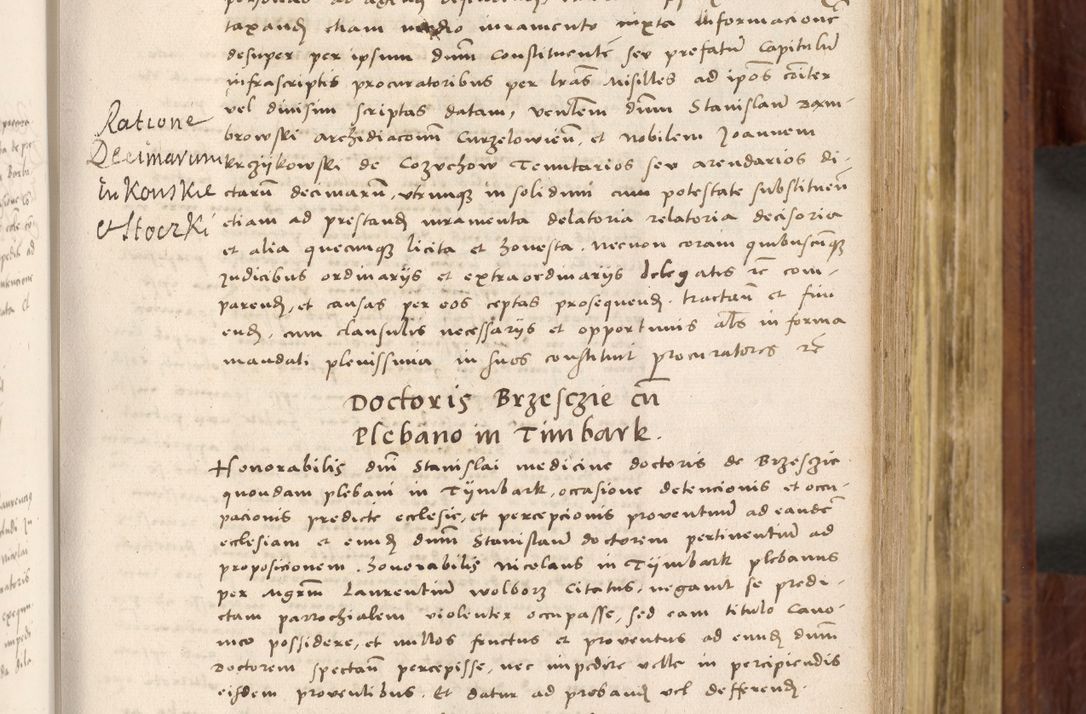 taxand etiam medio iuramento iuxta informacione
desuper per ipsum dnm Constituente seu prefatu Capitulu
infrascriptis procuratoribus per lras Misiles ad ipos coiter
vel diuisim scriptas datam, venlem dnm Stanislau Dam-
browski archidiaconu Curzelowien, et Nobilem Joannem
krzijkowski de Cozuchow Tenutarios seu arendarios di-
ctaru decimaru, vtrunque in solidum cum potestate substituen
etiam ad prestand iuramenta delatoria relatoria decisoria
et alia quecunque licita et honesta. necnon coram quibuscunque
Judicibus ordinarijs et extraordinarijs delegatis re com-
parend, et causas per eos ceptas prosequend. tractan et fini
end, cum clausulis necessarijs et opportunis als in forma
mandati plenissima in suos constituit procuratores re
Ratione
Decimarum
in Konskie
et Stoczki
Doctoris Brzesczie cu
Plebano in Timbark.
Honorabilis dni Stanislai medicine doctoris de Brzesczie
quondam plebani in Tijmbark, occasione detencionis et occu-
pacionis predicte ecclesie, et percepcionis prouentuu ad eandem
ecclesiam et eund dnum Stanislau doctorem pertinentiu ad
proposicionem. honorabilis Nicolaus in Tijmbark plebanus
per Mgrm Laurentiu Wolborz Citatus, negauit se predi-
ctam parrochialem violenter occupasse, sed eam titulo Cano-
nico possidere, et nullos fructus et prouentus ad eund dnum
Doctorem spectan percepisse, nec impedire velle in percipiendis
eisdem prouentibus. Et datur ad proband vel defferend.